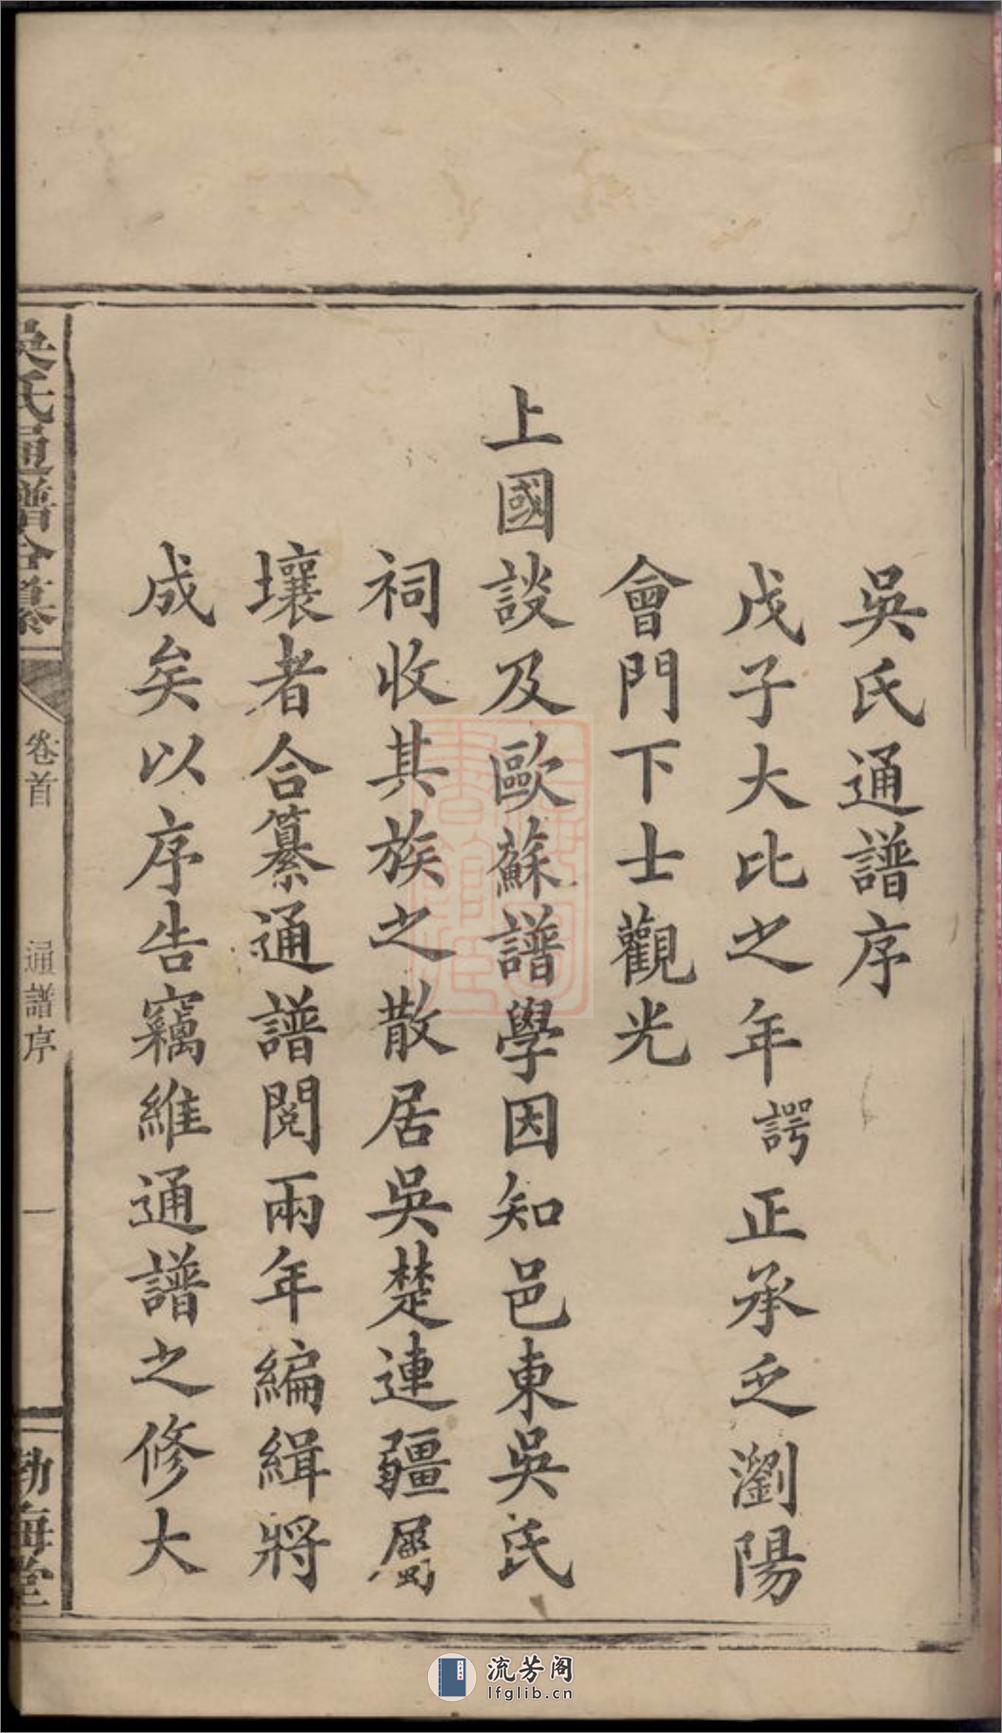 吳氏通譜序
戊子大比之年諤正承乏瀏陽
會門下士觀光
上國談及歐蘇譜學因知邑東吳氏
祠收其族之散居吳楚連疆屬
壤者合纂通譜閱兩年編緝將
成矣以序告竊維通譜之修大
吳氏通譜合纂
卷首
通譜序
一
勃海堂
流芳阁
lfglib.cn